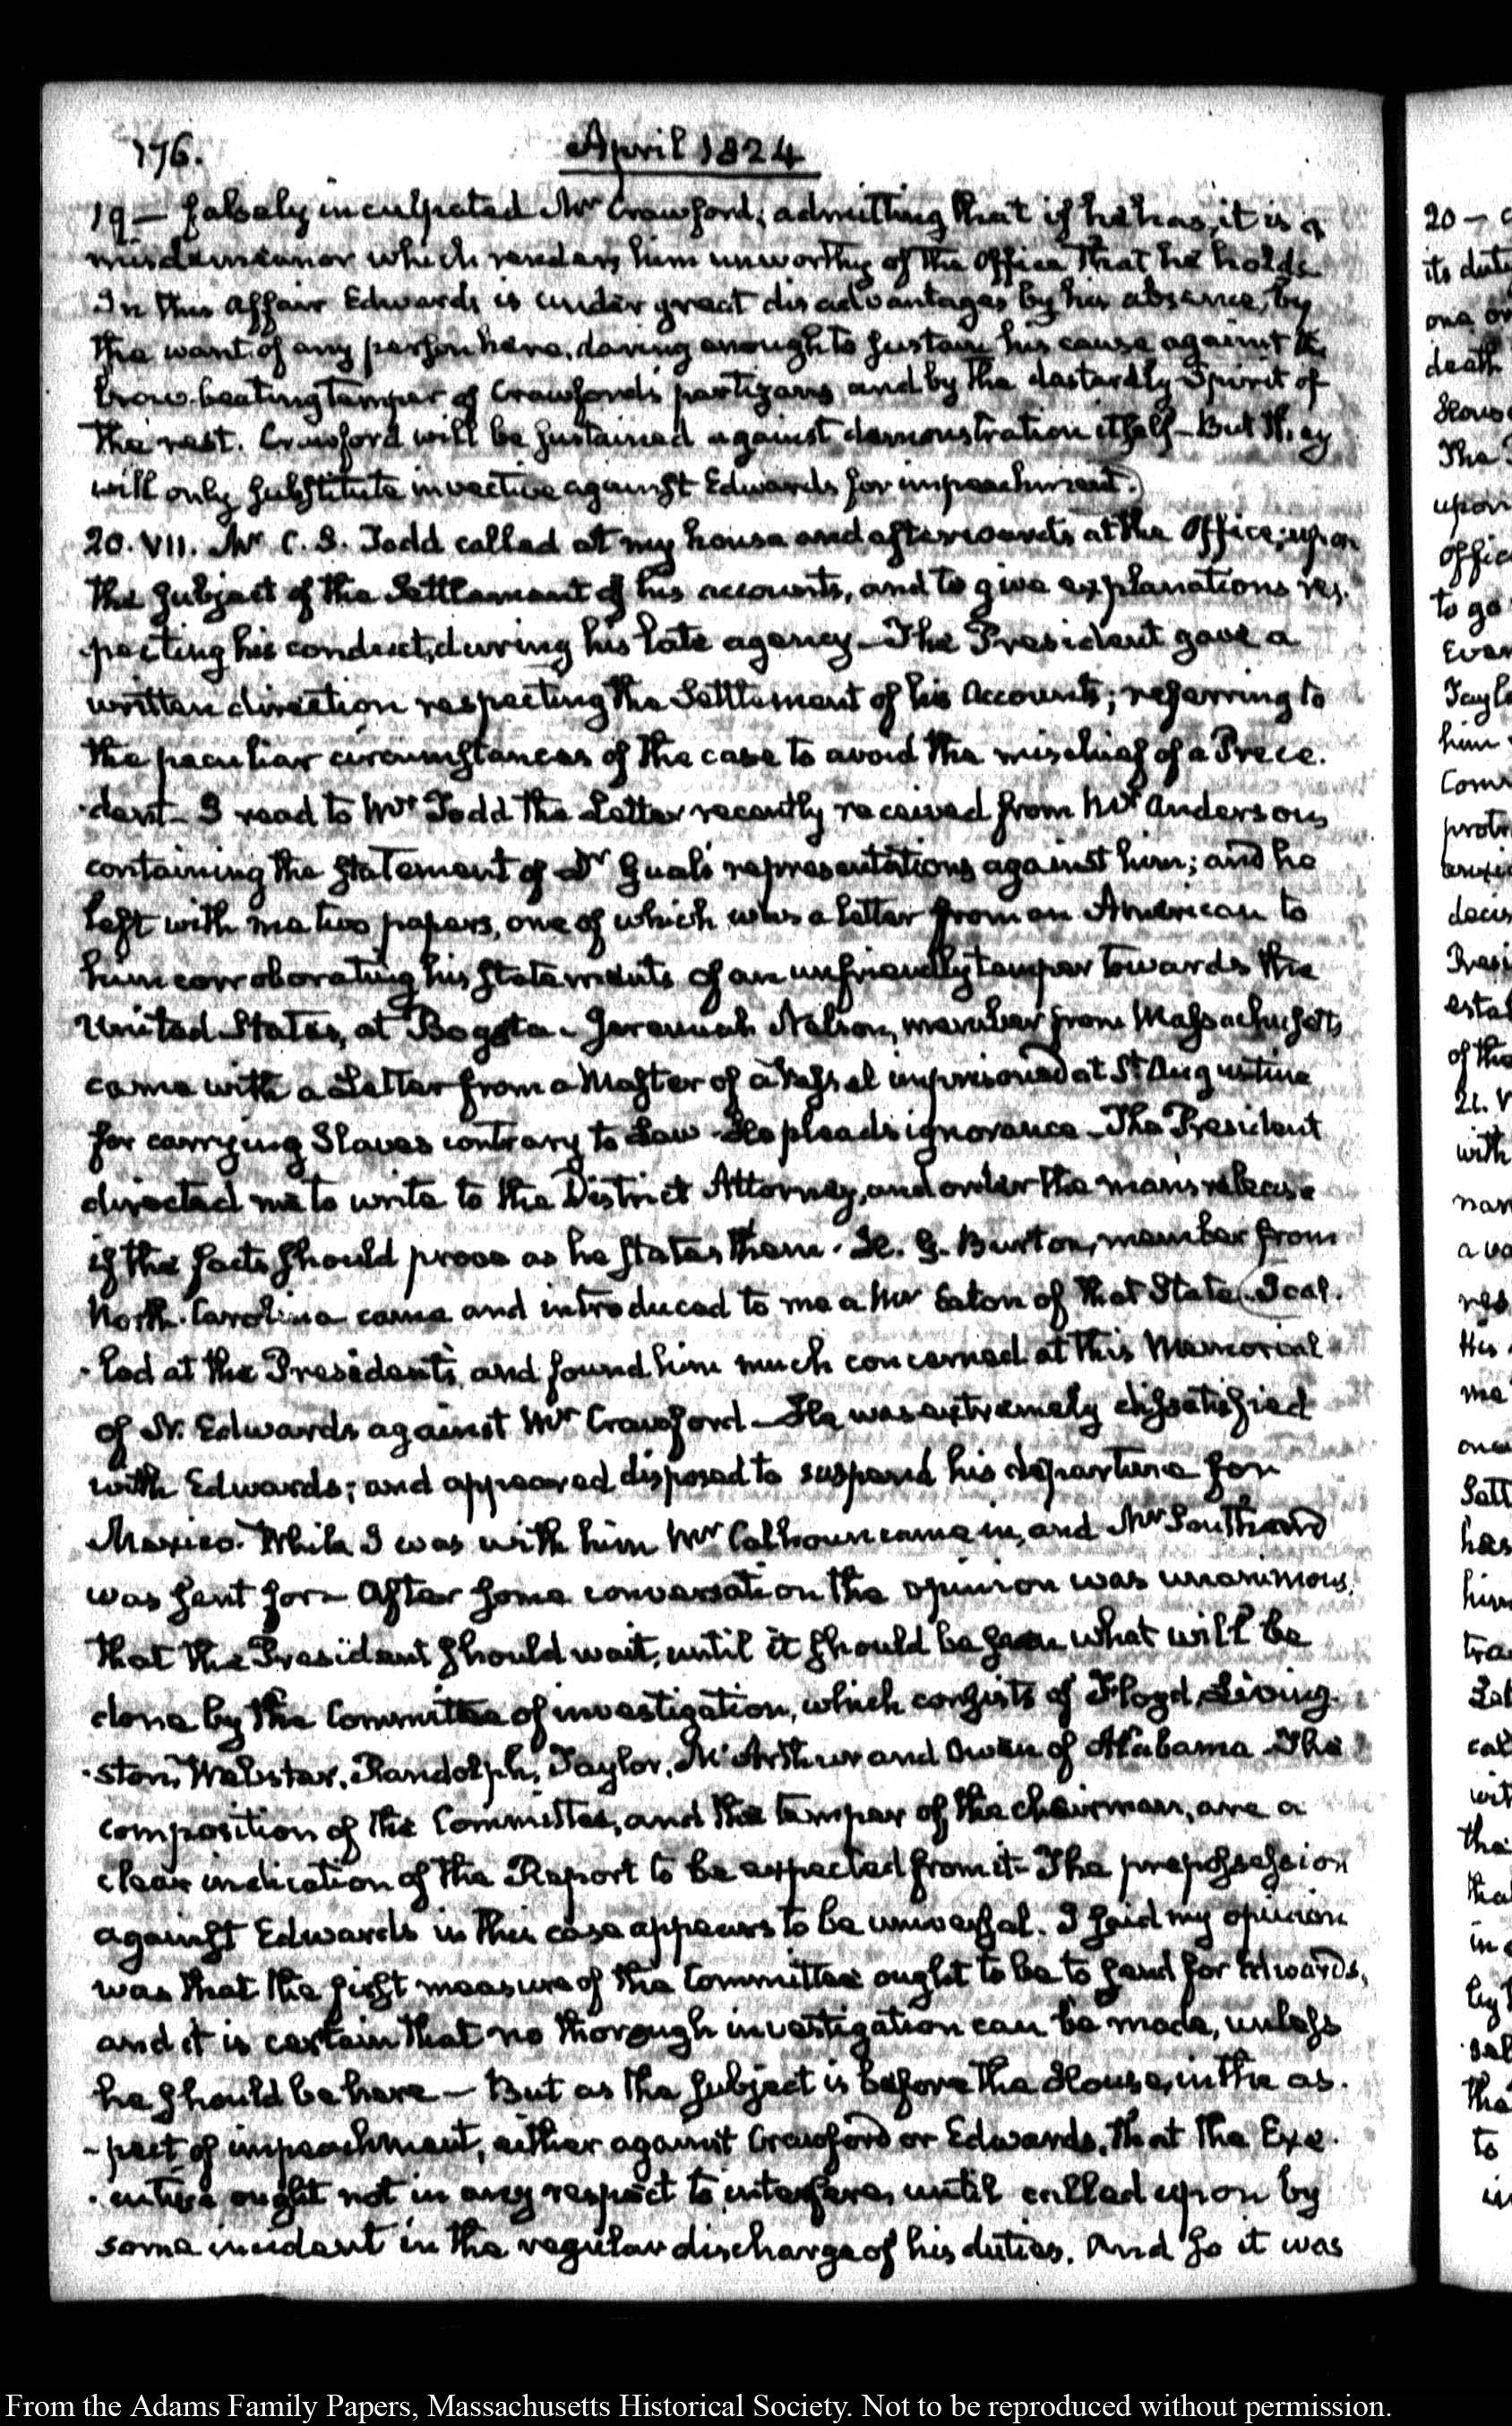 176.
April 1824
19 — falsely inculpated Mr Crawford; admitting that if he has, it is a
misdemeanor which renders him unworthy of the Office that he holds
In this affair Edwards is under great disadvantages by his absence, by
the want of any person here, daring enough to sustain his cause against the
brow-beating temper of Crawford's partizans and by the dastardly Spirit of
the rest. Crawford will be sustained against demonstration itself — But they
will only substitute invective against Edwards for impeachment.)
20. VII. Mr C. S. Todd called at my house and afterwards at the Office; upon
the subject of the Settlement of his accounts, and to give explanations res-
pecting his conduct, during his late agency — The President gave a
written direction respecting the Settlement of his Accounts; referring to
the peculiar circumstances of the case to avoid the mischief of a Prece-
-dent — I read to Mr Todd the Letter recently received from Mr Anderson,
containing the statement of Dr Gual's representations against him; and he
left with me two papers, one of which was a letter from an American to
him corroborating his statements of an unfriendly temper towards the
United States, at Bogota — Jeremiah Nelson, member from Massachusetts
came with a Letter from a Master of a vessel imprisoned at St Augustine
for carrying Slaves contrary to Law — He pleads ignorance — The President
directed me to write to the District Attorney, and order the man's release
if the facts should prove as he states them. H. G. Burton, member from
North-Carolina came and introduced to me a Mr Eaton of that State (I cal-
-led at the President's, and found him much concerned at this Memorial
of N. Edwards against Mr Crawford — He was extremely dissatisfied
with Edwards; and appeared disposed to suspend his departure for
Mexico. While I was with him Mr Calhoun came in, and Mr Southard
was sent for — After some conversation the opinion was unanimous,
that the President should wait, until it should be seen what will be
done by the Committee of investigation, which consists of Floyd, Living-
-ston, Webster, Randolph, Taylor, McArthur and Owen of Alabama — The
composition of the Committee, and the temper of the chairman, are a
clear indication of the Report to be expected from it — The prepossession
against Edwards in this case appears to be universal. I said my opinion
was that the first measure of the Committee ought to be to send for Edwards,
and it is certain that no thorough investigation can be made, unless
he should be here — But as the subject is before the House, in the as-
-pect of impeachment, either against Crawford or Edwards, that the Exe-
-cutive ought not in any respect to interfere, until called upon by
some incident in the regular discharge of his duties. And so it was
20 —
its
one or
death
The
upon
to go
him
of the
with
a
me
has
tra
wit
the
that
in
the
to
From the Adams Family Papers, Massachusetts Historical Society. Not to be reproduced without permission.